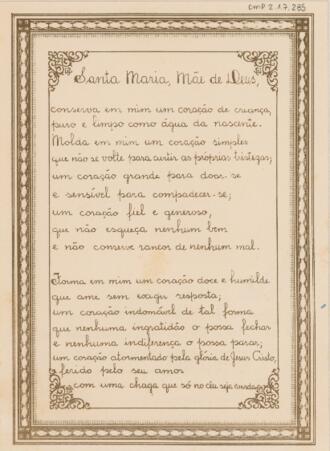 CMP 2.1.7.285
Santa Maria, Mãe de Deus,
conserva em mim um coração de criança,
puro e limpo como água da nascente.
Molda em mim um coração simples
que não se volte para curtir as próprias tristezas;
um coração grande para doar-se
e sensível para compadecer-se;
um coração fiel e generoso,
que não esqueça nenhum bem
e não conserve rancor de nenhum mal.
Forma em mim um coração doce e humilde
que ame sem exigir resposta;
um coração indomável de tal forma
que nenhuma ingratidão o possa fechar
e nenhuma indiferença o possa parar;
um coração atormentado pela glória de Jesus Cristo,
ferido pelo seu amor
com uma chaga que só no céu seja